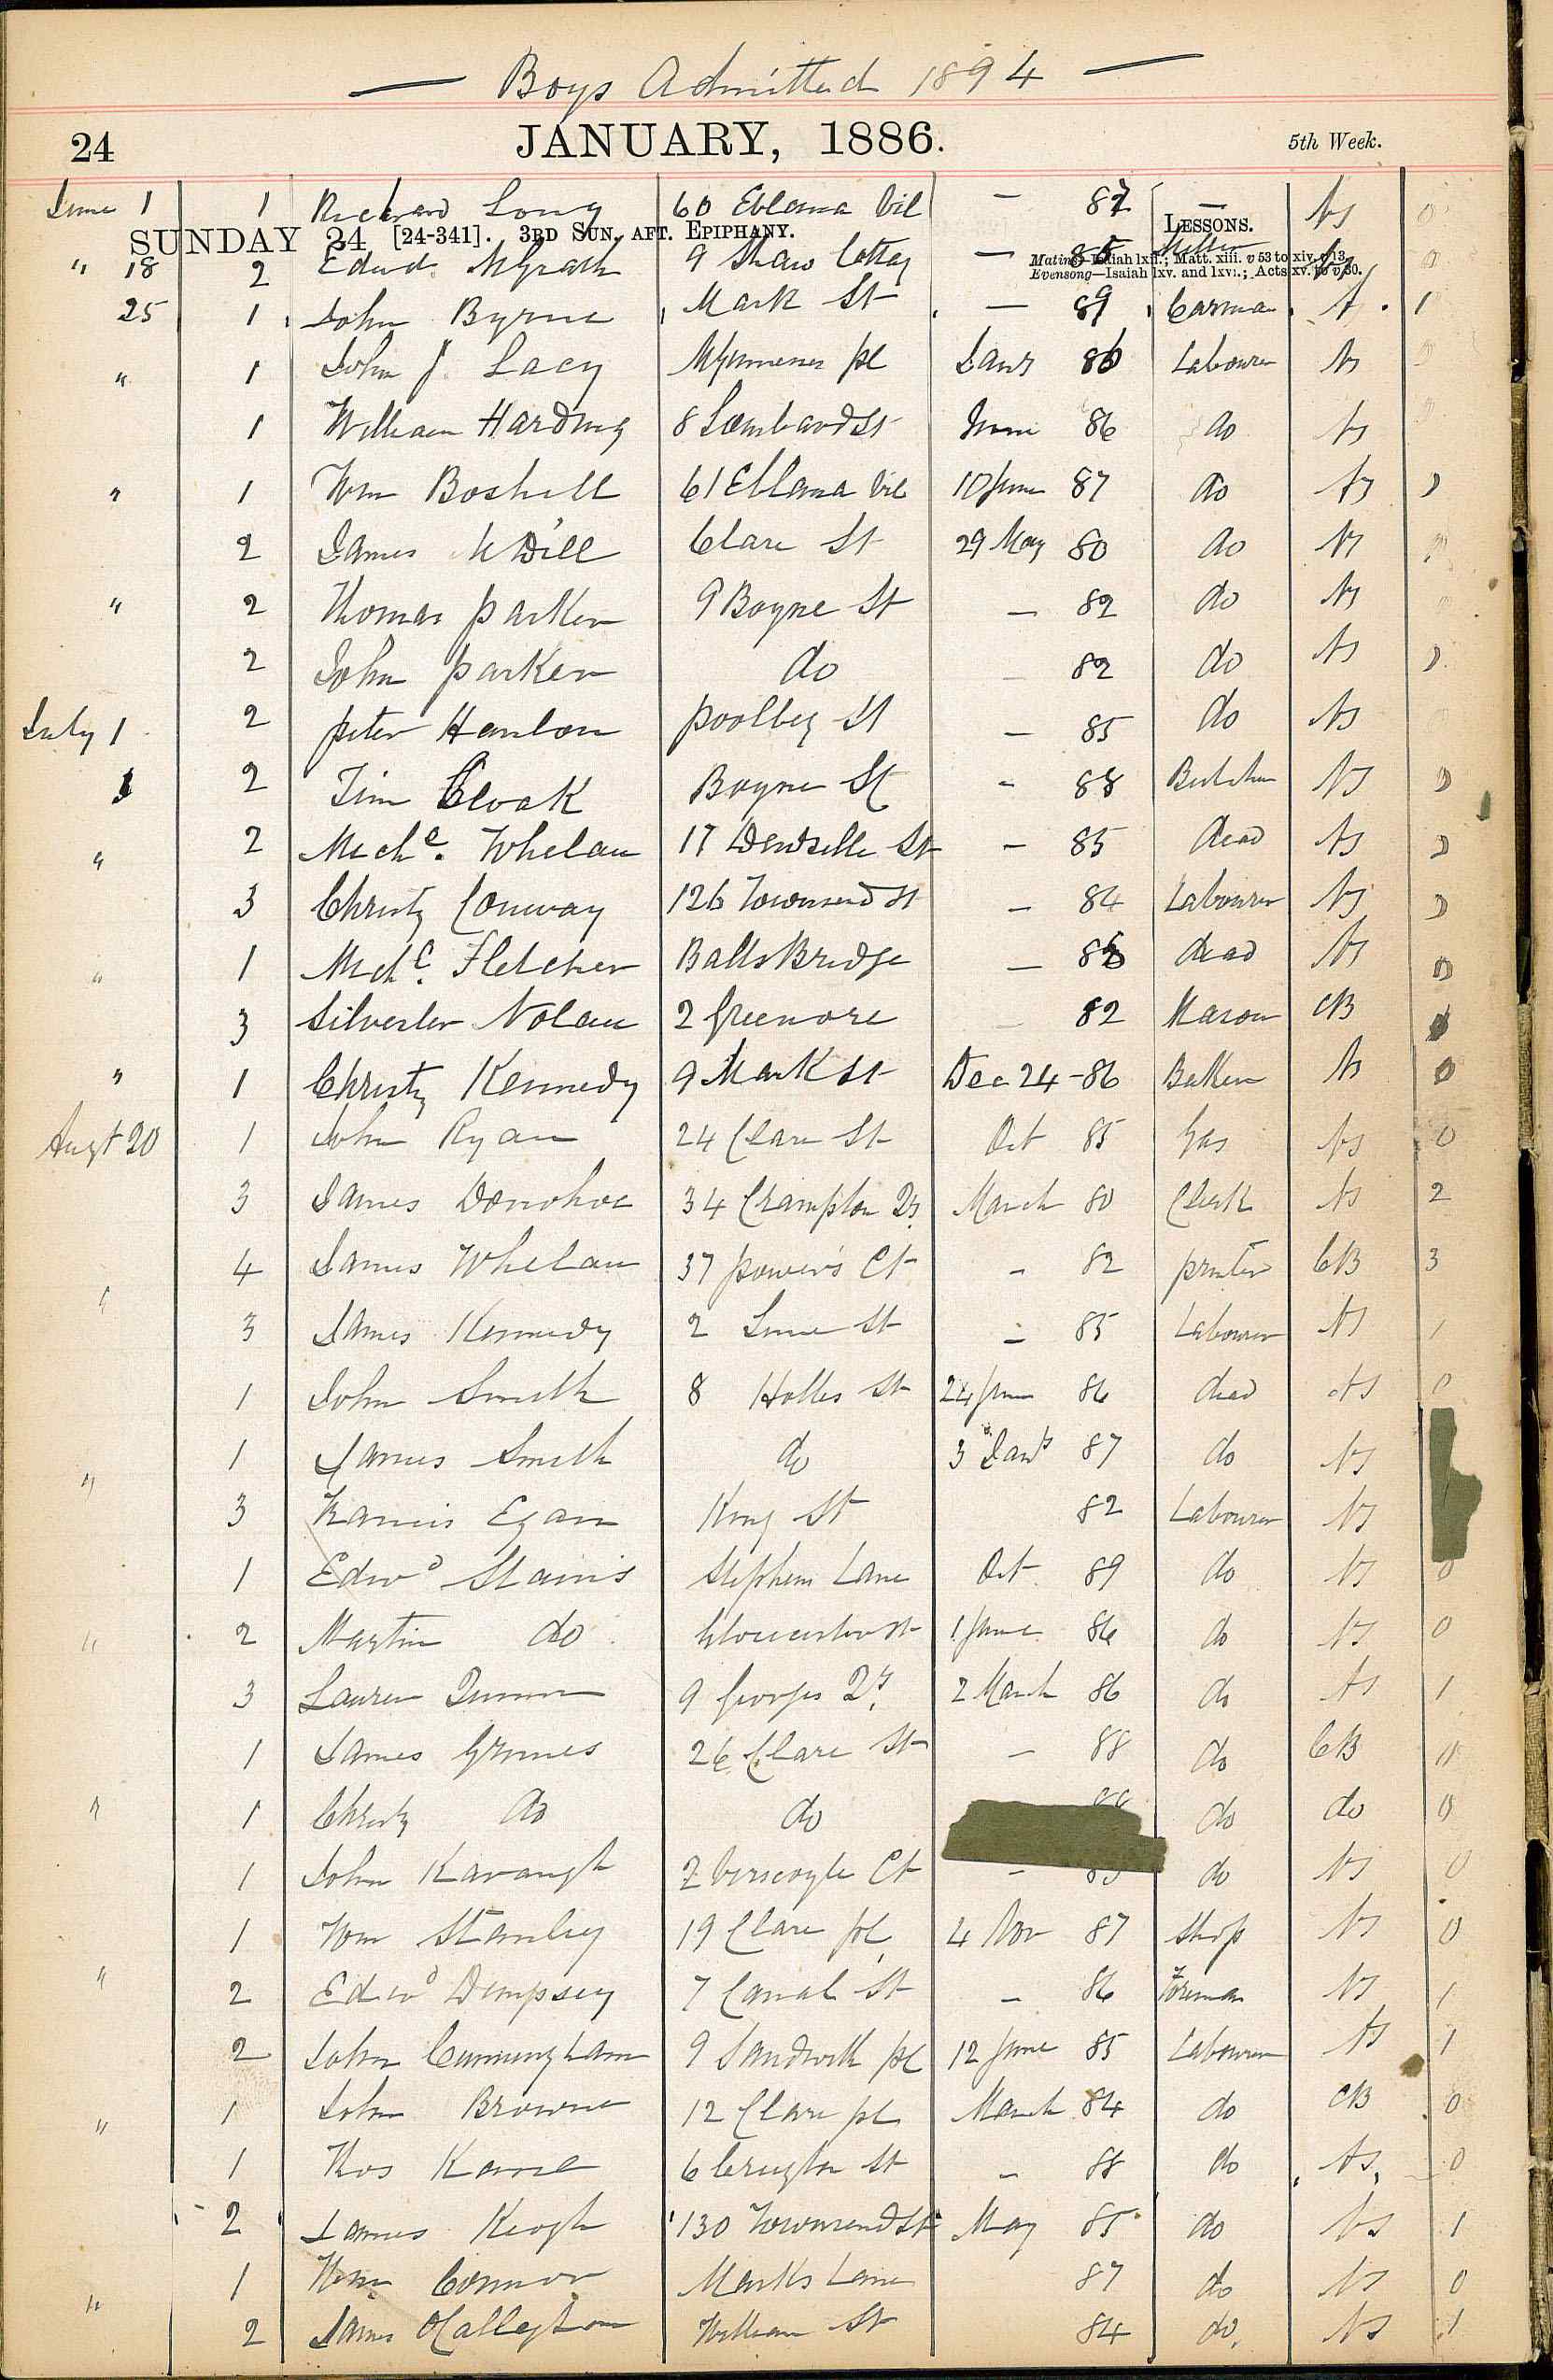 — Boys Admitted 1894 —
24 JANUARY, 1886. 5th Week.
June 1 1 Richard Long 60 Eblana Vil — 87 — NS 0
SUNDAY 24 [24-341]. 3RD SUN. AFT. EPIPHANY. LESSONS.
" 18 2 Edwd McGrath 9 Shaw Cottag — 85
Matins—Isaiah lxii.; Matt. xiii. v 53 to xiv. v 13.
Evensong—Isaiah lxv. and lxvi.; Acts xv. to v 30.
25 1 John Byrne Mark St — 89 Carman 1
" 1 John J. Lacy Jany 86 Labourer NS
1 William Harding 8 Lombard St June 86 do NS
" 1 Wm Boshell 61 Eblana Vil 10 June 87 do NS
2 James McDill Clare St 29 May 80 do NS
" 2 Thomas Parker 9 Boyne St — 82 do NS
2 John Parker do — 82 do NS
July 1 2 Peter Hanlon Poolbeg St — 85 do NS
2 Tim Cloak Boyne St - 88 Butcher NS
" 2 Michl. Whelan 17 Denzille St — 85 dead NS
3 Christy Conway 126 Townsend St — 84 Labourer NS
" 1 Michl. Fletcher Balls Bridge — dead NS
3 Silvester Nolan 2 Greenore — 82 Mason CB
" 1 Christy Kennedy 9 Mark St Dec 24 - 86 Baker NS 0
Augt 20 1 John Ryan 24 Clare St Oct 85 Gas NS 0
3 James Donohoe 34 Crampton Qs. March 80 Clerk NS 2
4 James Whelan 37 Power's Ct - 82 printer CB 3
" 3 James Kennedy 2 Lime St — 85 Labourer NS 1
1 John Smith 8 Holles St 24 June 86 dead NS 0
1 James Smith do 3 Jany 87 do NS
" 3 Francis Egan King St 82 Labourer NS
1 Edwd Stains Stephens Lane Oct 89 do NS 0
" 2 Martin do Gloucester St 1 June 86 do NS 0
3 Lauren Quinn 9 Georges Qy. 2 March 86 do NS 1
1 James Grimes 26 Clare St — 88 do CB 0
" 1 Christy do do do do 0
1 John Kavangh 2 Verscoyle Ct - do NS 0
1 Wm Stanley 19 Clare pl 4 Nov 87 Ship NS 0
" 2 Edwd Dempsey 7 Canal St — 86 Foreman NS 1
2 John Cunningham 9 Sandwith pl 12 June 85 Labourer NS 1
1 John Browne 12 Clare pl March 84 do CB 0
" 1 Thos Kane 6 St — 88 do NS 0
2 James Keogh 130 Townsend St May 85 do NS 1
1 Wm Connor Marks Lane 87 do NS 0
" 2 James O'Callaghan William St 84 do NS 1